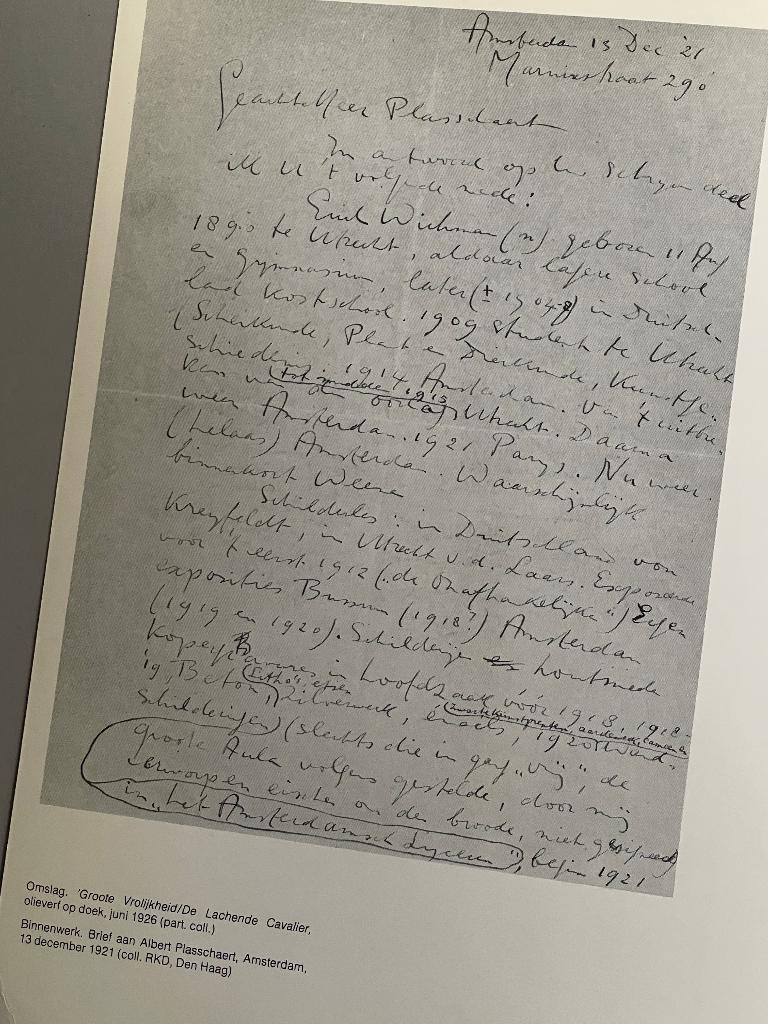 Amsterdam 13 Dec '21
Marnixstraat 290
Geachte Heer Plasschaert
In antwoord op Uw schrijven deel
ik U 't volgende mede:
Erich Wichman (n) geboren 11 Aug
1890 te Utrecht, aldaar lagere school
en gymnasium, later (± 1904-8) in Duitsch-
land kostschool. 1909 student te Utrecht
(Scheikunde, Plant en Dierkunde, Kunstge-
schiedenis. 1914 Amsterdam. Van 't uitbre-
ken van den oorlog (tot midden 1915) Utrecht. Daarna
weer Amsterdam. 1921 Parys. Nu weer
(helaas) Amsterdam. Waarschijnlijk
binnenkort Weenen
Schilderles: in Duitschland von
Kreyfeldt, in Utrecht v.d. Laars. Exposeerde
voor 't eerst 1912 („de Onafhankelijken") Eigen
exposities Bussum (1918?) Amsterdam
(1919 en 1920). Schilderijen en houtsneden
in hoofdzaak vóór 1918, 1918-
19, Beton, (Litho's, etsen) Zilverwerk, emails, 1920 Wand-
schilderingen) (slechts die in gang „vrij", de
groote Aula volgens gestelde, door mij
verworpen eischen om den broode, niet gesigneerd)
in „het Amsterdamsch Lyceum", begin 1921
Omslag. 'Groote Vrolijkheid/De Lachende Cavalier,
olieverf op doek, juni 1926 (part. coll.)
Binnenwerk. Brief aan Albert Plasschaert, Amsterdam,
13 december 1921 (coll. RKD, Den Haag)